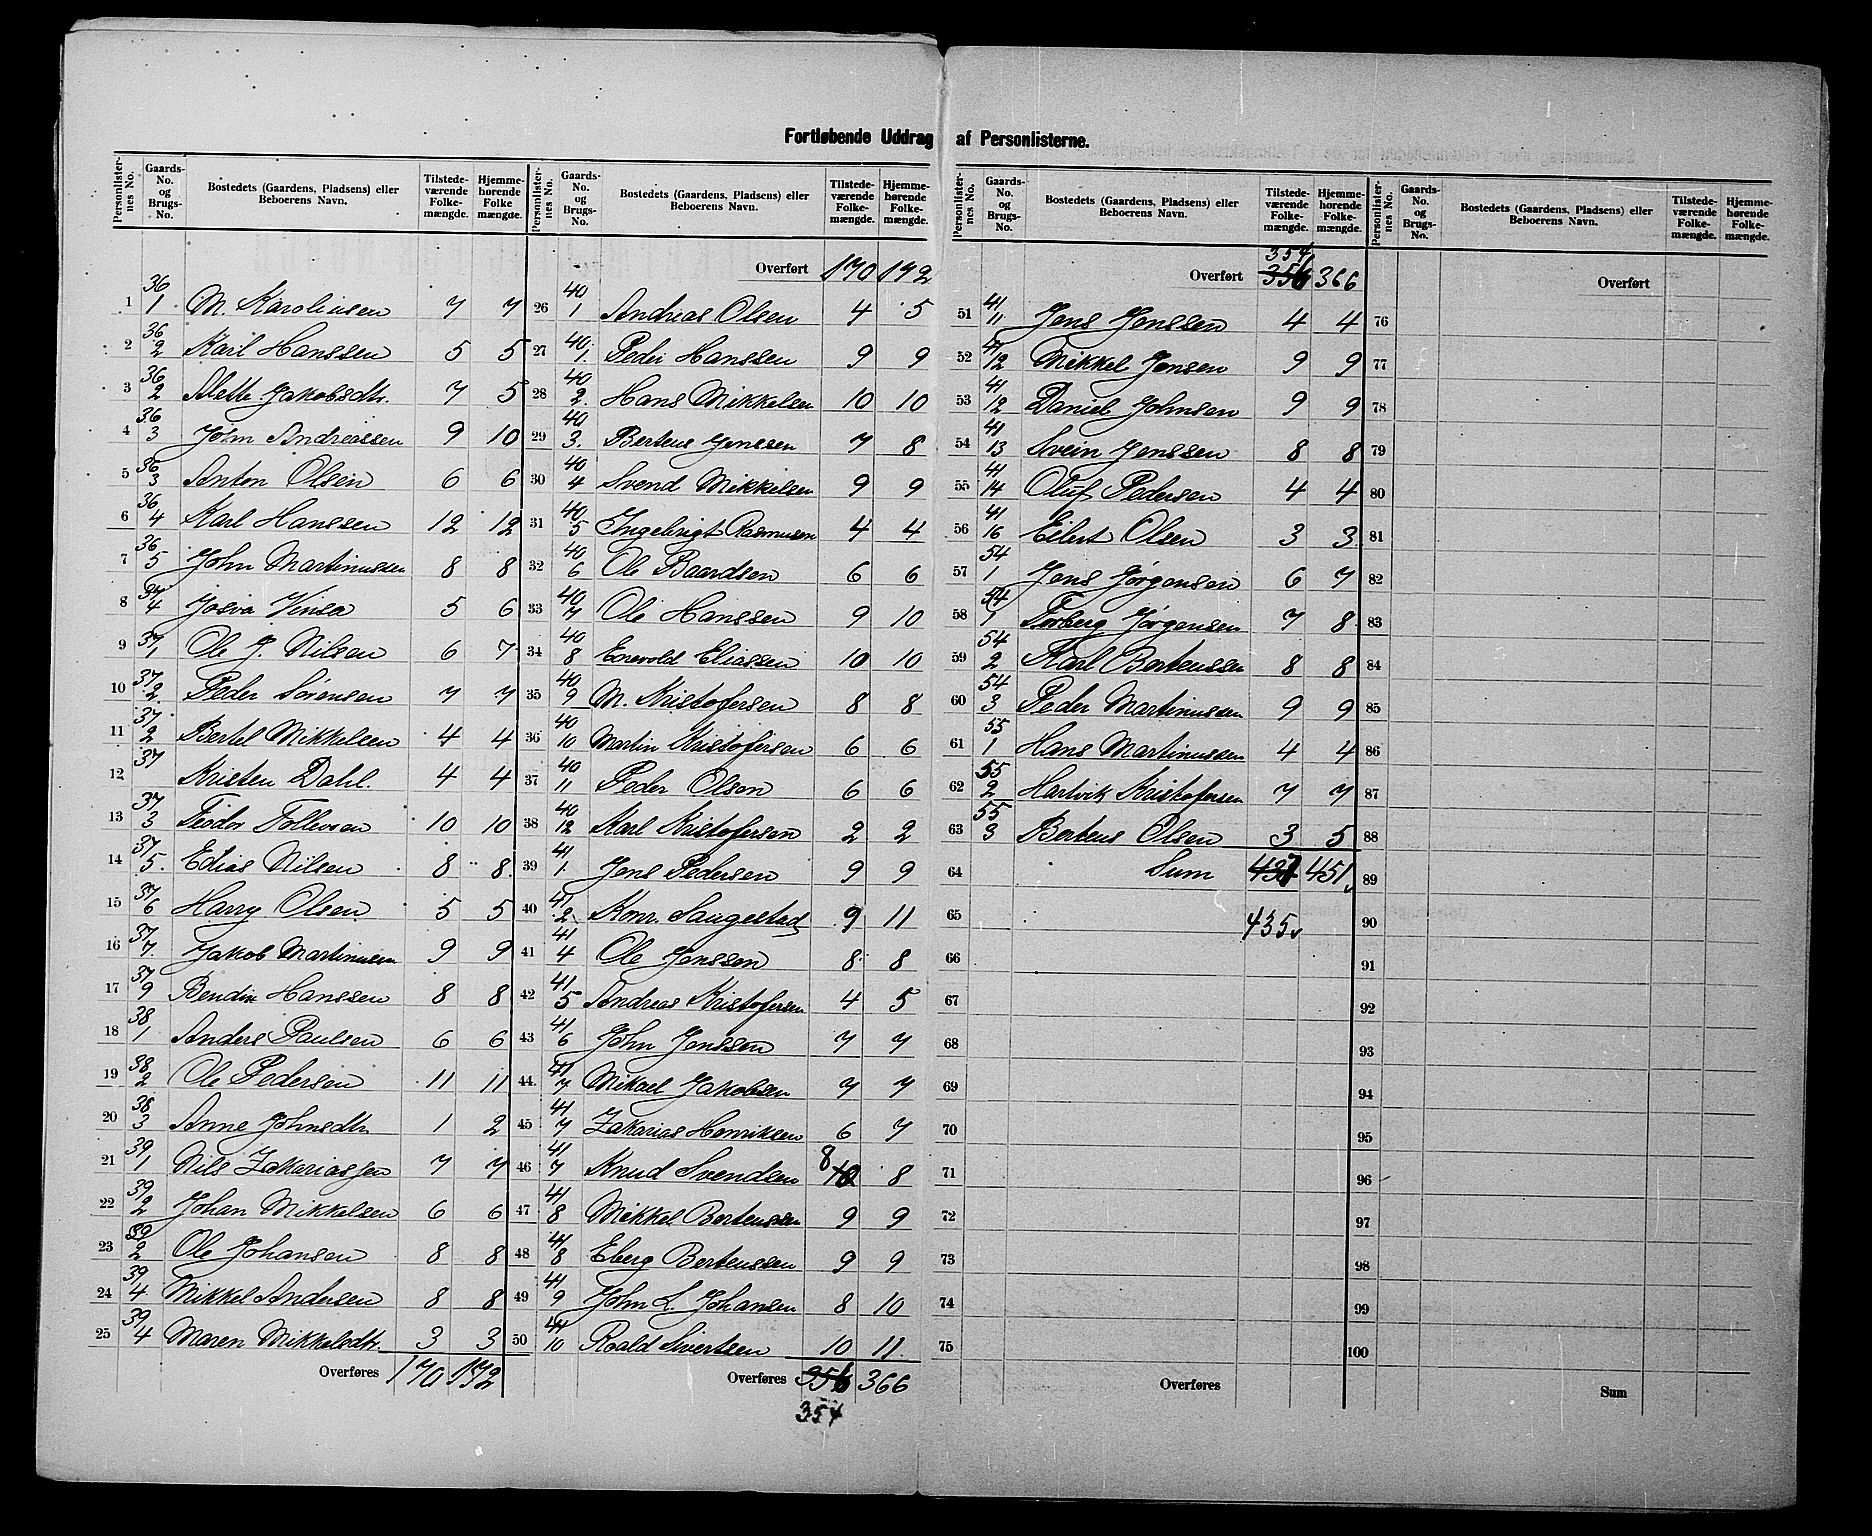 Fortløbende Uddrag af Personlisterne.
Personlister-nes No. | Gaards-No. og Brugs-No. | Bostedets (Gaardens, Pladsens) eller Beboerens Navn. | Tilstede-værende Folke-mængde. | Hjemme-hørende Folke mængde.
1 36/1 M. Karoliusen 7 7
2 36/2 Karl Hanssen 5 5
3 36/2 Alette Jakobsdtr. 7 5
4 36/3 John Andreassen 9 10
5 36/3 Anton Olsen 6 6
6 36/4 Karl Hanssen 12 12
7 36/5 John Martinussen 8 8
8 37/4 Josva Vinsa 5 6
9 37/1 Ole J. Nilsen 6 7
10 37/2 Peder Sørensen 7 7
11 37/2 Bertel Mikkelsen 4 4
12 37 Kristen Dahl. 4 4
13 37/3 Teodor Tollevsen 10 10
14 37/5. Edias Nilsen 8 8
15 37/6 Harry Olsen 5 5
16 37/7. Jakob Martinusen 9 9
17 37/9 Bendix Hanssen 8 8
18 38/1 Anders Paulsen 6 6
19 38/2 Ole Pedersen 11 11
20 38/3 Anne Johnsdtr 1 2
21 39/1 Nils Zakariassen 7 7
22 39/2 Johan Mikkelsen 6 6
23 39/2 Ole Johansen 8 8
24 39/4 Mikkel Andersen 8 8
25 39/4 Maren Mikkelsdtr. 3 3
Overføres 170 172
Personlister-nes No. | Gaards-No. og Brugs-No. | Bostedets (Gaardens, Pladsens) eller Beboerens Navn. | Tilstede-værende Folke-mængde. | Hjemme-hørende Folke-mængde.
Overført 170 172
26 40/1 Andreas Olsen 4 5
27 40/1. Peder Hanssen 9 9
28 40/2. Hans Mikkelsen 10 10
29 40/3. Berteus Jenssen 7 8
30 40/4 Svend Mikkelsen 9 9
31 40/5 Ingebrigt Rasmusen 4 4
32 40/6 Ole Baardsen 6 6
33 40/7 Ole Hanssen 9 10
34 40/8 Enevold Eliassen 10 10
35 40/9 M. Kristofersen 8 8
36 40/10 Martin Kristofersen 6 6
37 40/11 Peder Olsen 6 6
38 40/12 Karl Kristofersen 2 2
39 41/1. Jens Pedersen 9 9
40 41/2. Konr. Saugestad 9 11
41 41/4 Ole Jenssen 8 8
42 41/5 Andreas Kristofersen 4 5
43 41/6 John Jenssen 7 7
44. 41/7 Mikael Jakobsen 7 7
45 41/7 Zakarias Henriksen 6 7
46 41/7 Knud Svendsen 8 10 8
47 41/8 Mikkel Bertenssen 9 9
48 41/8 Eberg Bertenssen 9 9
49 41/9 John L. Johansen 8 10
50 41/10 Roald Sivertsen 10 11.
Overføres 356 366
354
Personlister-nes No. | Gaards-No. og Brugs-No. | Bostedets (Gaardens, Pladsens) eller Beboerens Navn. | Tilstede-værende Folke-mængde. | Hjemme-hørende Folke-mængde.
354
Overført 356 366
51 41/11 Jens Jenssen 4 4
52 41/12 Mikkel Jensen 9 9
53 41/12 Daniel Johnsen 9 9
54 41/13 Svein Jenssen 8 8
55 41/14 Oluf Pedersen 4 4
56 41/16 Eilert Olsen 3 3
57 54/1 Jens Jørgensen 6 7
58 54/1 Torberg Jørgensen 7 8
59 54/2 Karl Bertenssen 8 8
60 54/3 Peder Martinussen 9 9
61 55/1 Hans Martinussen 4 4
62 55/2 Hartvik Kristofersen 7 7
63 55/3 Berteus Olsen 3 5
64 Sum 437 451
65 435
66
67
68
69
70
71
72
73
74
75
Overføres
Personlister-nes No. | Gaards-No. og Brugs-No. | Bostedets (Gaardens, Pladsens) eller Beboerens Navn. | Tilstede-værende Folke-mængde. | Hjemme-hørende Folke-mængde.
Overført
76
77
78
79
80
81
82
83
84
85
86
87
88
89
90
91
92
93
94
95
96
97
98
99
100
Sum